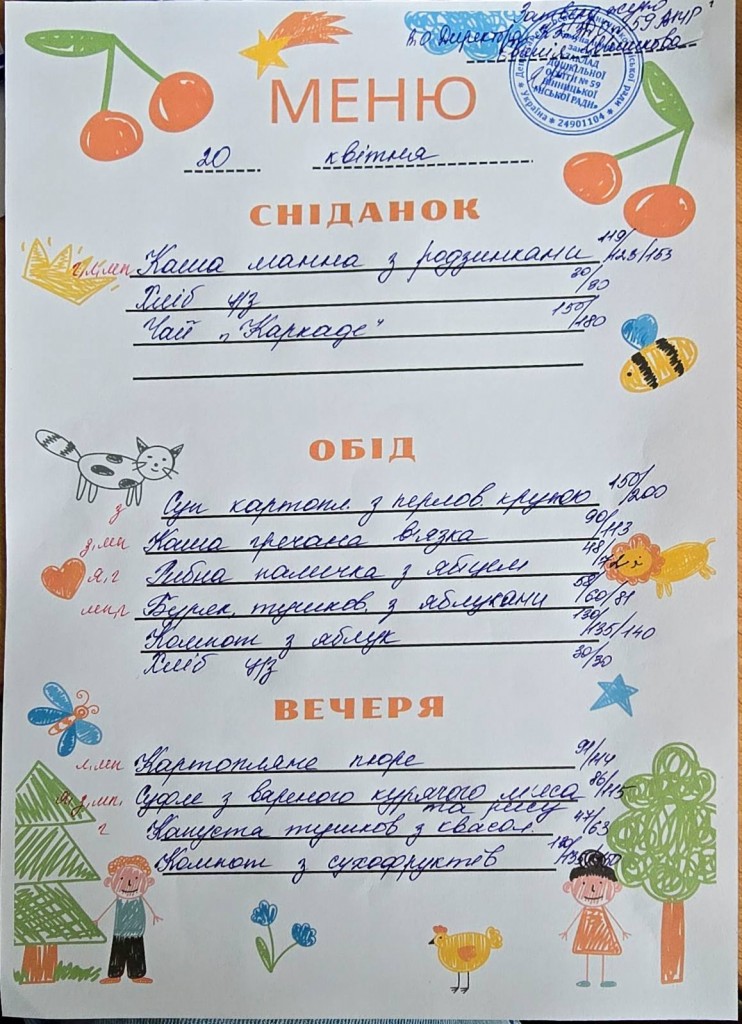 В.О. Директора
ЗАКЛАД
ДОШКІЛЬНОЇ
ОСВІТИ № 59
ВІННИЦЬКОЇ
МІСЬКОЇ РАДИ»
* Україна * 24901104 *
МЕНЮ
20 квітня
СНІДАНОК
Каша манна з родзинками 119/128/153
Хліб ц/з 30/30
Чай „Каркаде" 150/180
ОБІД
з Суп картопл. з перлов. крупою 150/200
з, мп Каша гречана в'язка 90/113
я, г Рибна паличка з яйцем 48/
мп, г Буряк. тушков. з яблуками 60/81
Компот з яблук 130/135/140
Хліб ц/з 30/30
ВЕЧЕРЯ
л, мп Картопляне пюре 91/114
я, з, мп. Суфле з вареного курячого мяса 86/115
та рису
г Капуста тушков з квасол. 47/63
Компот з сухофруктів